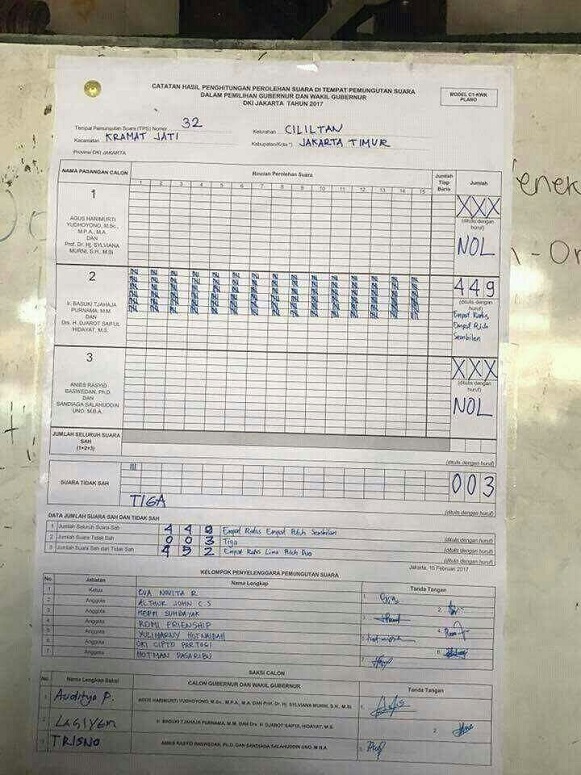 CATATAN HASIL PENGHITUNGAN PEROLEHAN SUARA DI TEMPAT PEMUNGUTAN SUARA
DALAM PEMILIHAN GUBERNUR DAN WAKIL GUBERNUR
DKI JAKARTA TAHUN 2017
MODEL C1-KWK
PLANO
Tempat Pemungutan Suara (TPS) Nomor 32
Kelurahan CILILTAN
Kecamatan KRAMAT JATI
Kabupaten/Kota *) JAKARTA TIMUR
Provinsi DKI JAKARTA
NAMA PASANGAN CALON
Rincian Perolehan Suara
Jumlah Tiap Baris
Jumlah
1 2 3 4 5 6 7 8 9 10 11 12 13 14 15
1
AGUS HARIMURTI
YUDHOYONO, M.Sc.,
M.P.A., M.A.
DAN
Prof. Dr. Hj. SYLVIANA
MURNI, S.H., M.Si
XXX
(ditulis dengan huruf)
NOL
2
Ir. BASUKI TJAHAJA
PURNAMA, M.M
DAN
Drs. H. DJAROT SAIFUL
HIDAYAT, M.S.
449
(ditulis dengan huruf)
Empat Ratus
Empat Puluh
Sembilan
3
ANIES RASYID
BASWEDAN, Ph.D.
DAN
SANDIAGA SALAHUDDIN
UNO, M.B.A.
XXX
(ditulis dengan huruf)
NOL
JUMLAH SELURUH SUARA
SAH
(1+2+3)
(ditulis dengan huruf)
SUARA TIDAK SAH
003
TIGA
(ditulis dengan huruf)
DATA JUMLAH SUARA SAH DAN TIDAK SAH
1 Jumlah Seluruh Suara Sah 449 Empat Ratus Empat Puluh Sembilan
(ditulis dengan huruf)
2 Jumlah Suara Tidak Sah 003 Tiga
(ditulis dengan huruf)
3 Jumlah Suara Sah dan Tidak Sah 452 Empat Ratus Lima Puluh Dua
(ditulis dengan huruf)
Jakarta, 15 Februari 2017
KELOMPOK PENYELENGGARA PEMUNGUTAN SUARA
No. Jabatan Nama Lengkap Tanda Tangan
1 Ketua EVA NOVITA R
2 Anggota ALTHUR JOHN C S
3 Anggota
4 Anggota ROMI FRIENSHIP
5 Anggota
6 Anggota OKI CIPTO PARTOGI
7 Anggota HOTMAN PASARIBU
SAKSI CALON
No Nama Lengkap Saksi CALON GUBERNUR DAN WAKIL GUBERNUR Tanda Tangan
1 Auditya P. AGUS HARIMURTI YUDHOYONO, M.Sc., M.P.A., M.A. DAN Prof. Dr. Hj. SYLVIANA MURNI, S.H., M.Si
2 LAGIYEM Ir. BASUKI TJAHAJA PURNAMA, M.M. DAN Drs. H. DJAROT SAIFUL HIDAYAT, M.S.
3 TRISNO ANIES RASYID BASWEDAN, Ph.D. DAN SANDIAGA SALAHUDDIN UNO, M.B.A